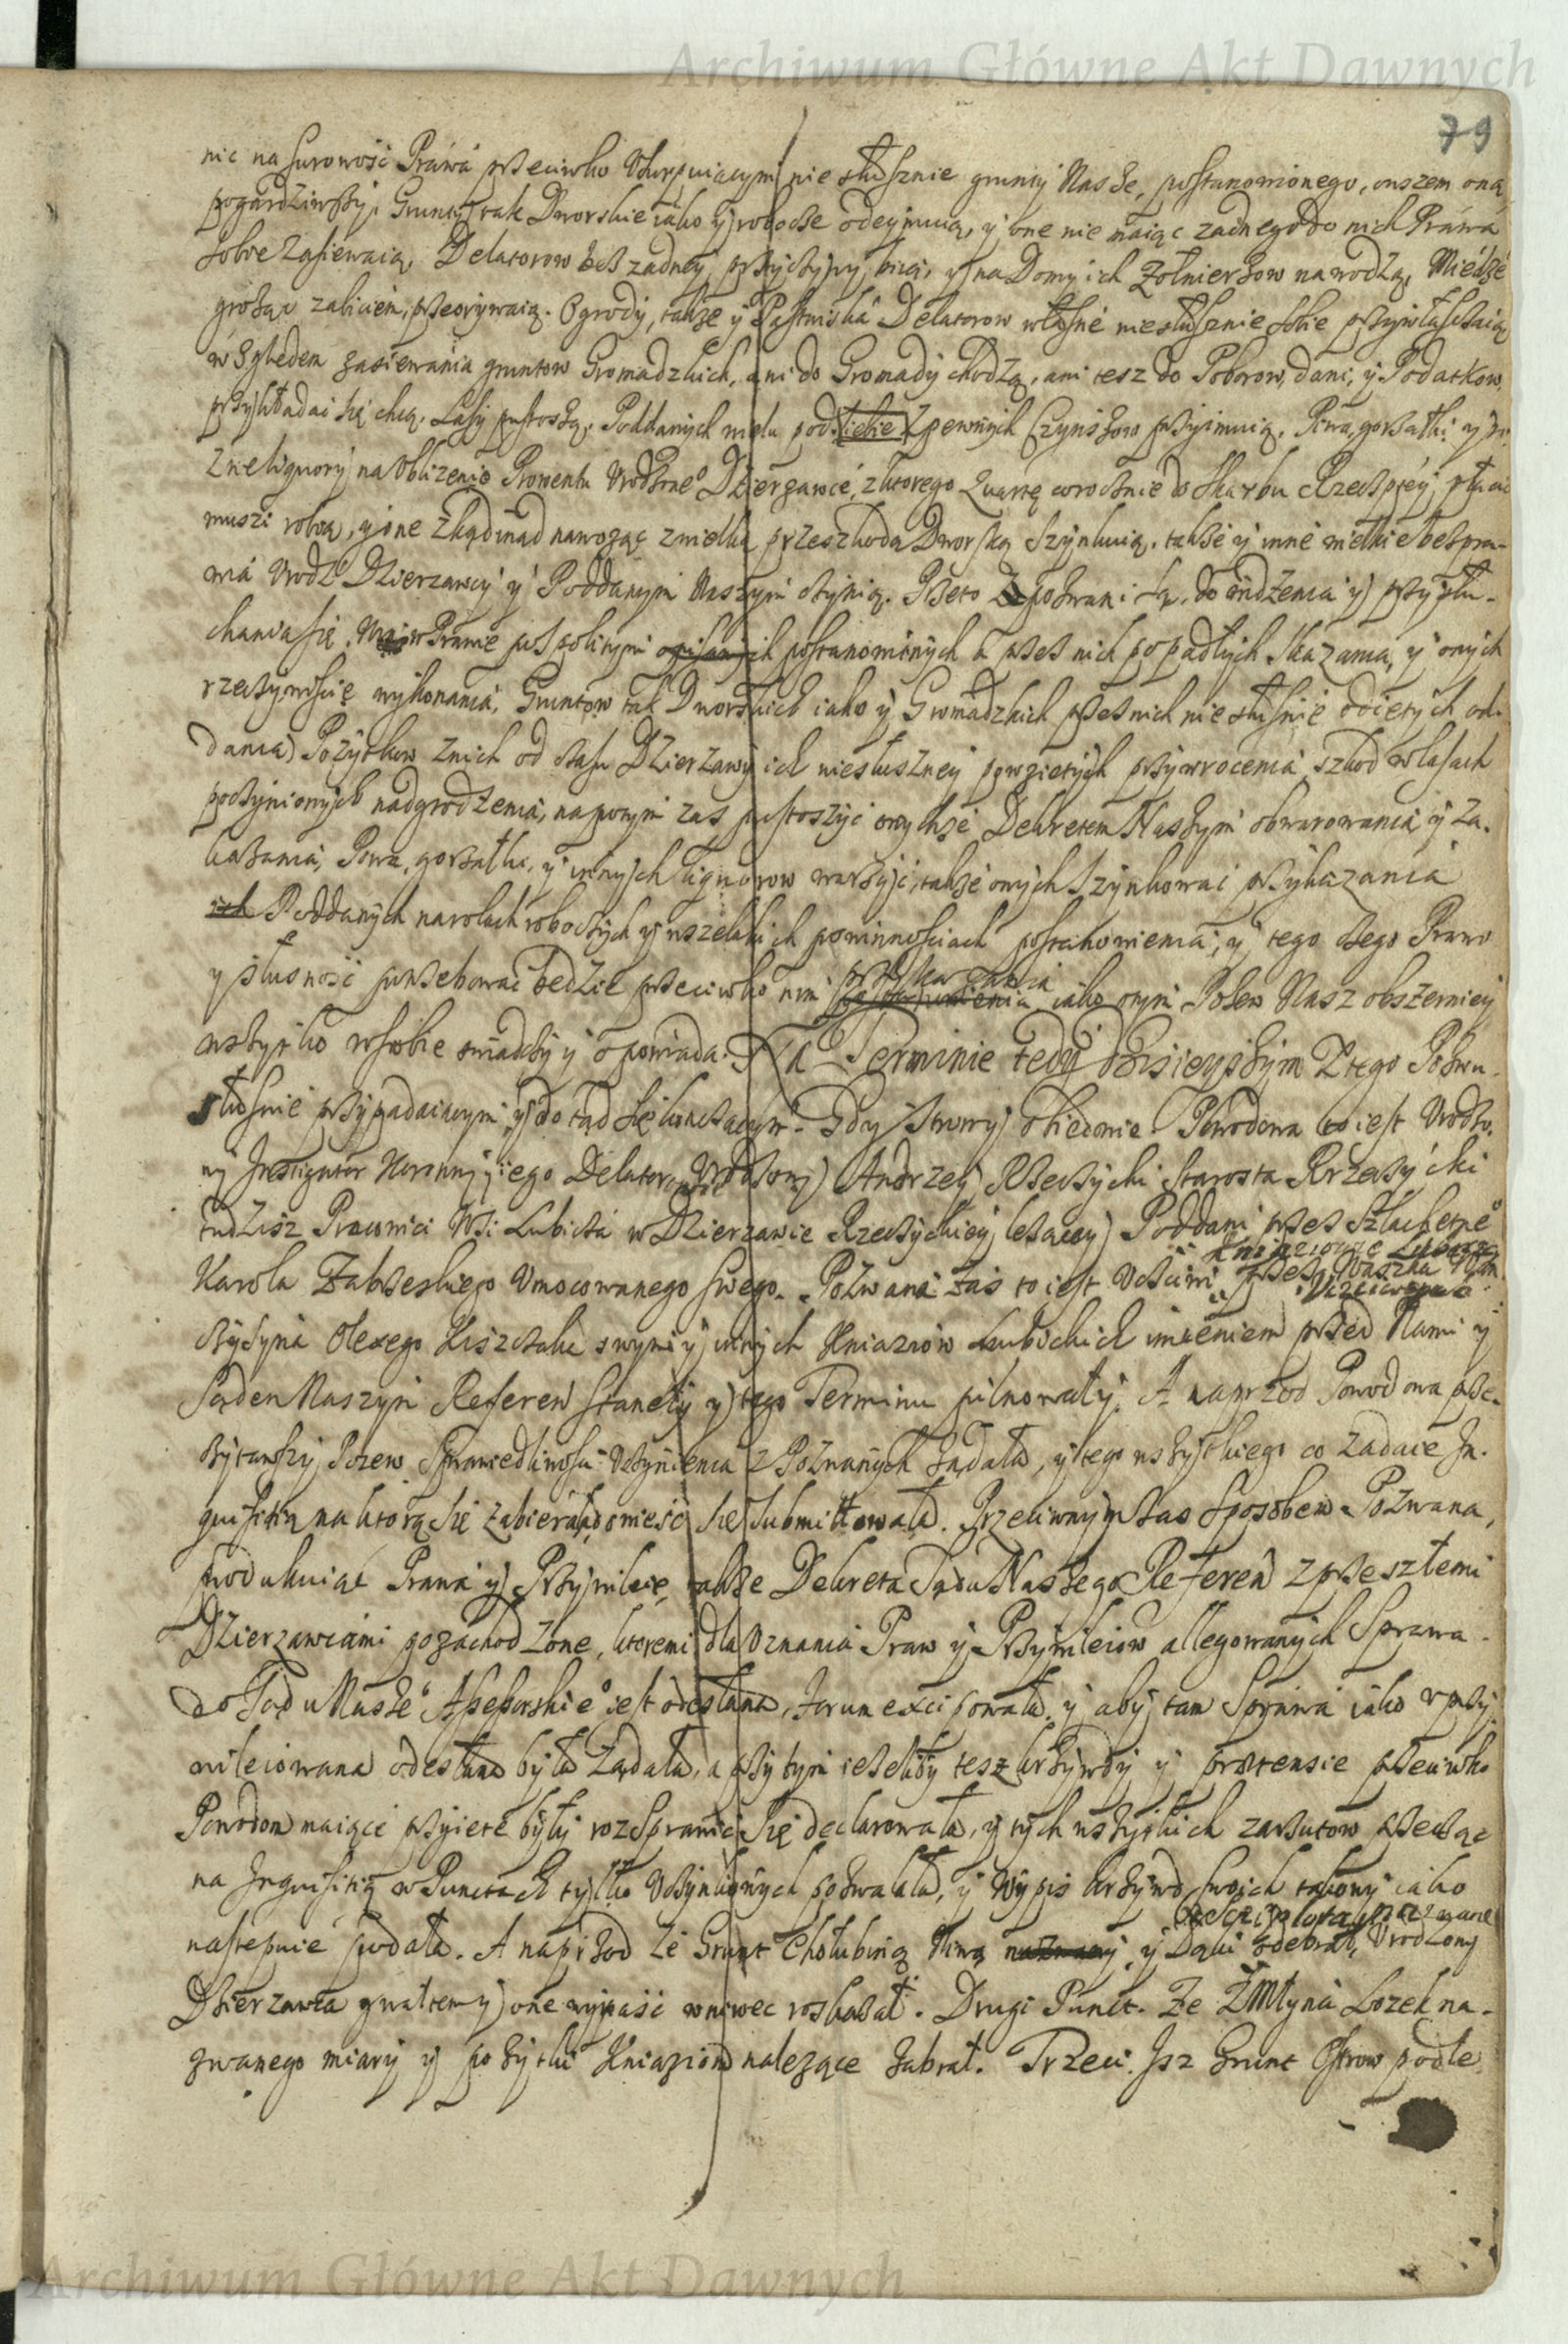 Archiwum Główne Akt Dawnych
79
nic na surowość Práwá przeciwko Usurpuiącym niesłusznie grunty Nasze, postanowionego, owszem oną
pogárdziwszy, Grunty tak Dworskie iáko y robocze odeymuią, y one nie maiąc zadnego do nich Práwá
sobie zasiewaią, Delatorow bez zadney przyczyny biią, y na Domy ich Zołnierzow nawodzą, Miedze
grożąc zabiciem, przeorywaią. Ogrody, także y Pastwiská Delatorow własne niesłusznie sobie przywłaszczaią
względem zasiewánia gruntow Gromadzkich, ani do Gromady chodzą, ani tesz do Poborow, dani, y Podatkow
przykładai się chcą. Lasy pustoszą, Poddanych wielu pod siebie z pewnych Czynszow przyimuią. Piwa, gorzałki y
zne liquory na Ubliżenie Prowentu Urodzone° Dzierzawcé, z ktorego Quartę corocznie do Skarbu Rzeczptéy płacić
muszi robią, y one zkądinąd nawożąc z wielką przeszkodą Dworską Szynkuią, także y inné wielkie bezpra-
wia Urodz° Dzierzawcy y Poddanym Naszym czynią. Przeto pozwani są, do widzenia y przysłu-
chania się Win w Prawie pospolitym opisanych postanowionych a przez nich popadłych skazania, y onych
rzeczywiście wykonania, Gruntow tak Dworskich iako y Gromadzkich przez nich niesłusnie odiętych od-
dania, Pożytkow z nich od czasu Dzierzawy ich niesłuszney powziętych przywrocenia, szkod w lasach
poczynionych nadgrodzenia, napotym zas pustoszyć onychże Dekretem Naszym obwarowania y za-
kazania, Piwa, gorzałki, y innych liquorow warzyć, także onych Szynkować przykazania
ich Poddanych na rolach roboczych y wszelakich powinnościach postanowienia, y tego czego Prawo
y słusność potrzebować będzie przeciwko nim przykazania iako onym Pozew Nasz obszerniey
wszystko w sobie swiadczy y opowiada. Na Terminie tedy dzisieyszym z tego Pozwu
słusnie przypadaiącym, y do tąd się konczącym. Gdy Strony obiedwie Powodowa to iest Urodzo-
ny Instigator Koronny y iego Delator Urodzony Andrzey Rzeczycki Starosta Rrzeczycki
tudzisz Pracowici Wsi Lubicza w Dzierzawie Rzeczyckiey leżącey Poddani przez Szlachetne°
Kniaziowie Lubiccy
Karola Zabrzeskiego Umocowanego swego. Pozwana zaś to iest Uczciwi przez Waszka
Olexego Liszczaka swym y innych Kniaziow Lubickich imieniem przed Nami y
Sądem Naszym Referen stanęły y tego Terminu pilnowały. A naprzod Powodowa prze-
czytawszy Pozew Sprawiedliwości Uczynienia z Pozwanych żądała, y tego wszystkiego co zadaie In-
quisitią na ktorą się zabierała dowiesć się submittowała. Przeciwnym zas sposobem Pozwana,
produkuiąc Prawa y Przywileie, także Decreta Sądu Naszego Referen z przeszłemi
Dzierzawcámi pozachodzone, ktoremi dla Uznania Praw y Przywileiow allegowanych Sprawa
do Sądu Nasze° Assessorskie° iest odesłana, forum excipowała, y aby tam Sprawa iako uprzy-
wileiowana odesłana była żądała, a przy tym ieżeliby tesz krzywdy y praetensie przeciwko
Powodom maiące przyięte były rozsprawić się declarowała, y tych wszystkich zarzutow przecząc
na Inquisitią w Punctach tylko Uczynionych pozwalała, y Wypis krzywd swoich takowy iako
nastepuie podała. A naprzod Ze Grunt Chołubiną Niwą nazwany, y Dąbi odebrał, Urodzony
Dzierzawca gwałtem y one wypaść wniwec roskazał. Drugi Punct. Ze z Młyna Lozek na-
zwanego miary y pożytki Kniaziom należące zabrał. Trzeci. Isz Grunt Ostrow podle
Archiwum Główne Akt Dawnych